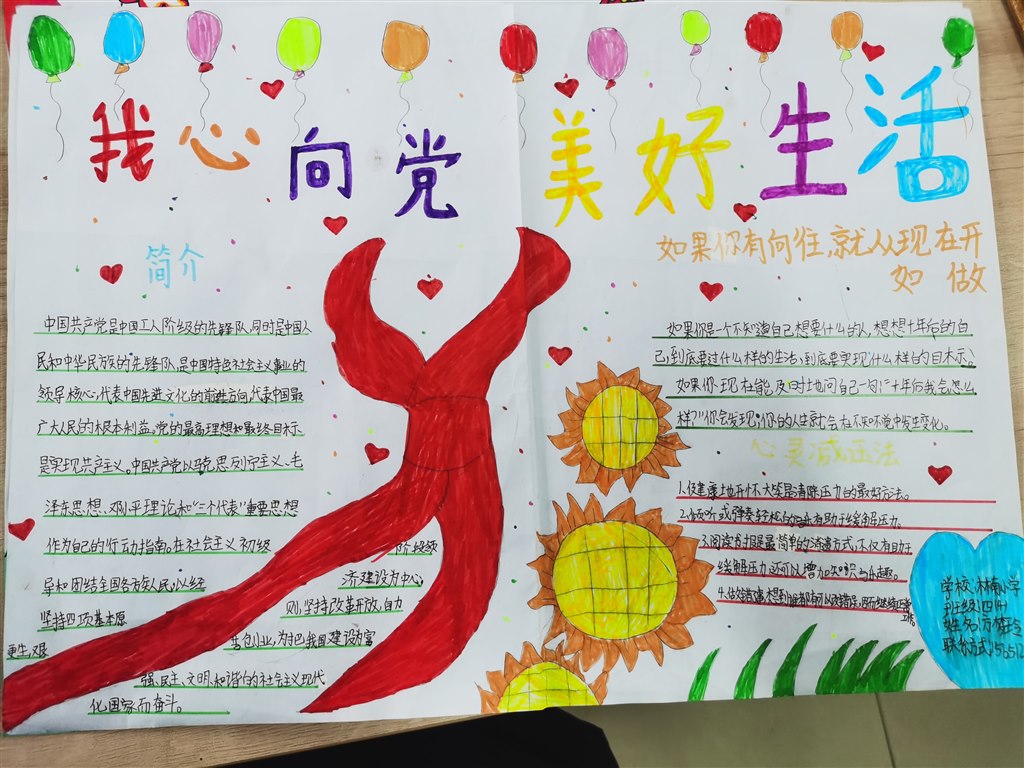 我心向党 美好生活
简介
中国共产党是中国工人阶级的先锋队,同时是中国人
民和中华民族的先锋队,是中国特色社会主义事业的
领导核心,代表中国先进文化的前进方向,代表中国最
广大人民的根本利益。党的最高理想和最终目标
是实现共产主义。中国共产党以马克思列宁主义、毛
泽东思想、邓小平理论和“三个代表”重要思想
作为自己的行动指南。在社会主义初级 阶段领
导和团结全国各族人民,以经 济建设为中心,
坚持四项基本原 则,坚持改革开放,自力
更生,艰 苦创业,为把我国建设为富
强、民主、文明、和谐的社会主义现代
化国家而奋斗。
如果你有向往,就从现在开
如 做
如果你是一个不知道自己想要什么的人,想想十年后的自
己,到底要过什么样的生活,到底要实现什么样的目标。
如果你现在能及时地问自己一句“十年后我会怎么
样?”你会发现,你的人生就会在不知不觉中发生变化。
心灵减压法
1.健康地开怀大笑是消除压力的最好方法。
2.听或弹奏轻松的有助于缓解压力。
3.阅读书报是最简单的消遣方式,不仅有助于
缓解压力,还可以增加知识与乐趣。
4.
学校:林南小学
班级:四
姓名:
联系方式: